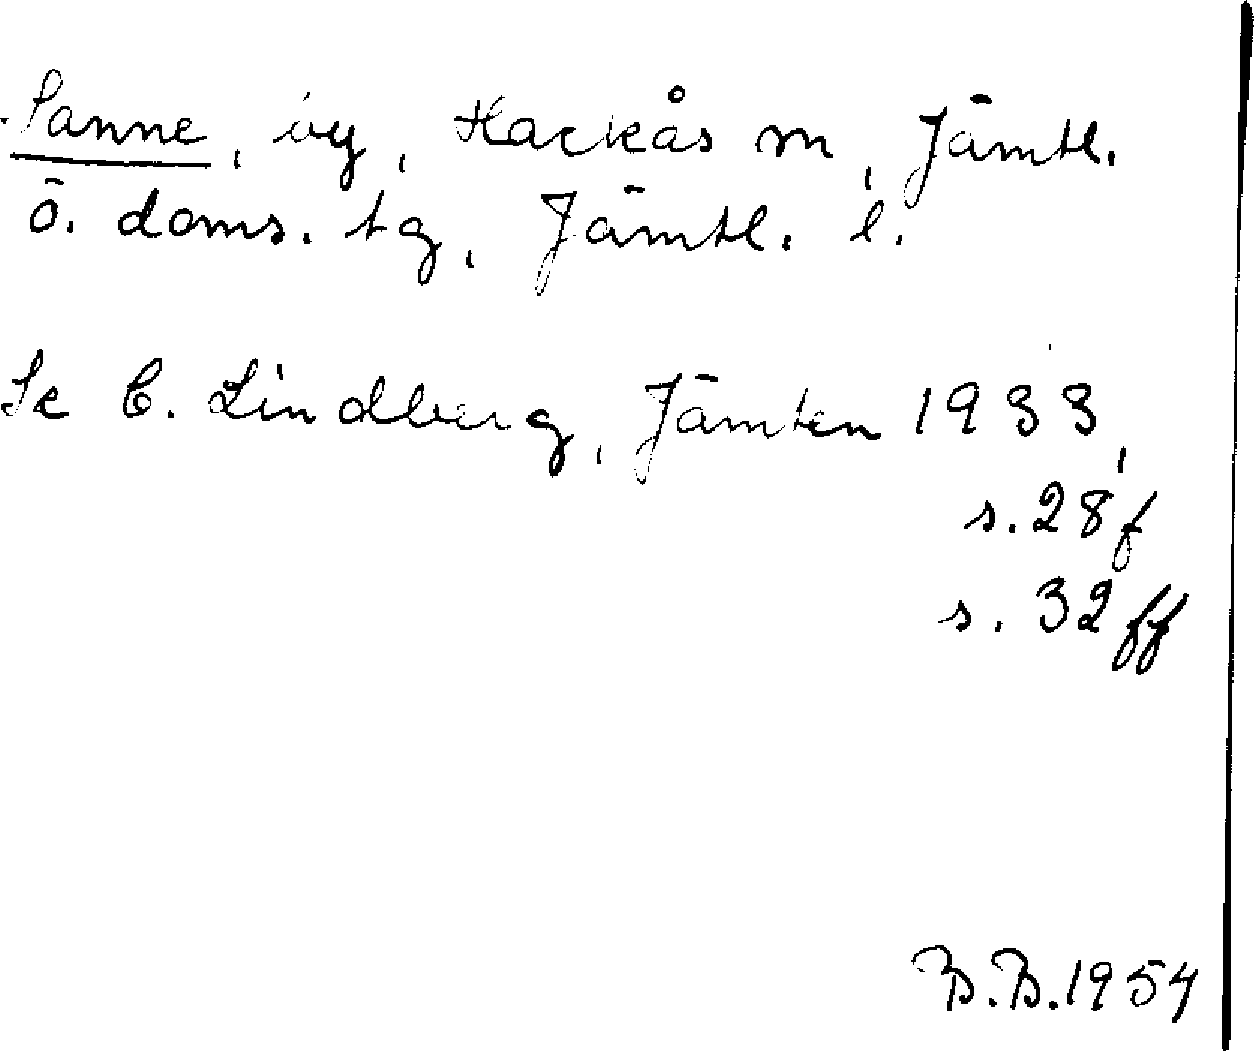 Sanne, by, Hackås sn, Jämtl.
ö. doms. tg, Jämtl. l.
Se C. Lindberg, Jämten 1933,
s. 28 f
s. 32 ff
B.B. 1954